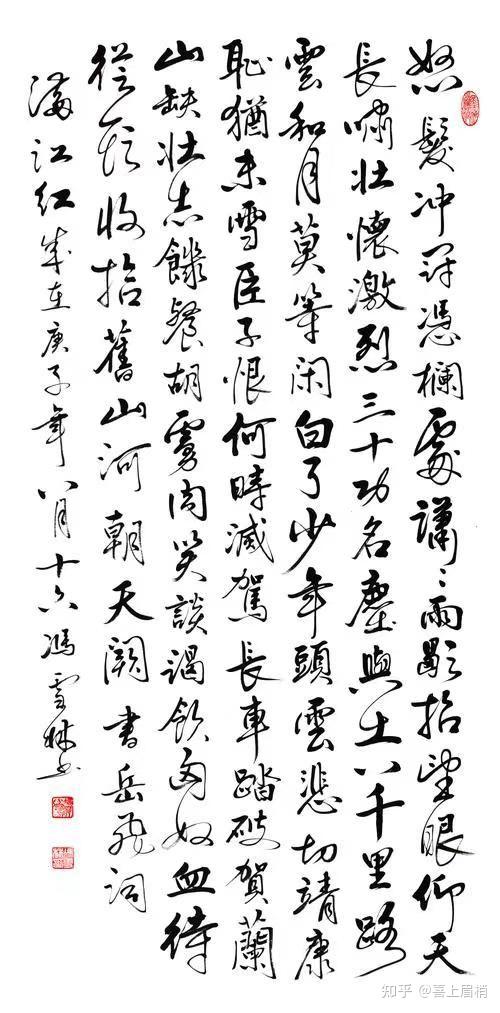 怒髮冲冠憑欄處瀟〻雨歇抬望眼仰天
長嘯壯懷激烈三十功名塵與土八千里路
雲和月莫等闲白了少年頭雲悲切靖康
恥猶未雪臣子恨何時滅駕長車踏破賀蘭
山缺壯志饑餐胡虜肉笑談渴飲匈奴血待
從頭收拾舊山河朝天闕書岳飛詞
滿江红歲在庚子年八月十六馮雪林书
知乎 @喜上眉梢